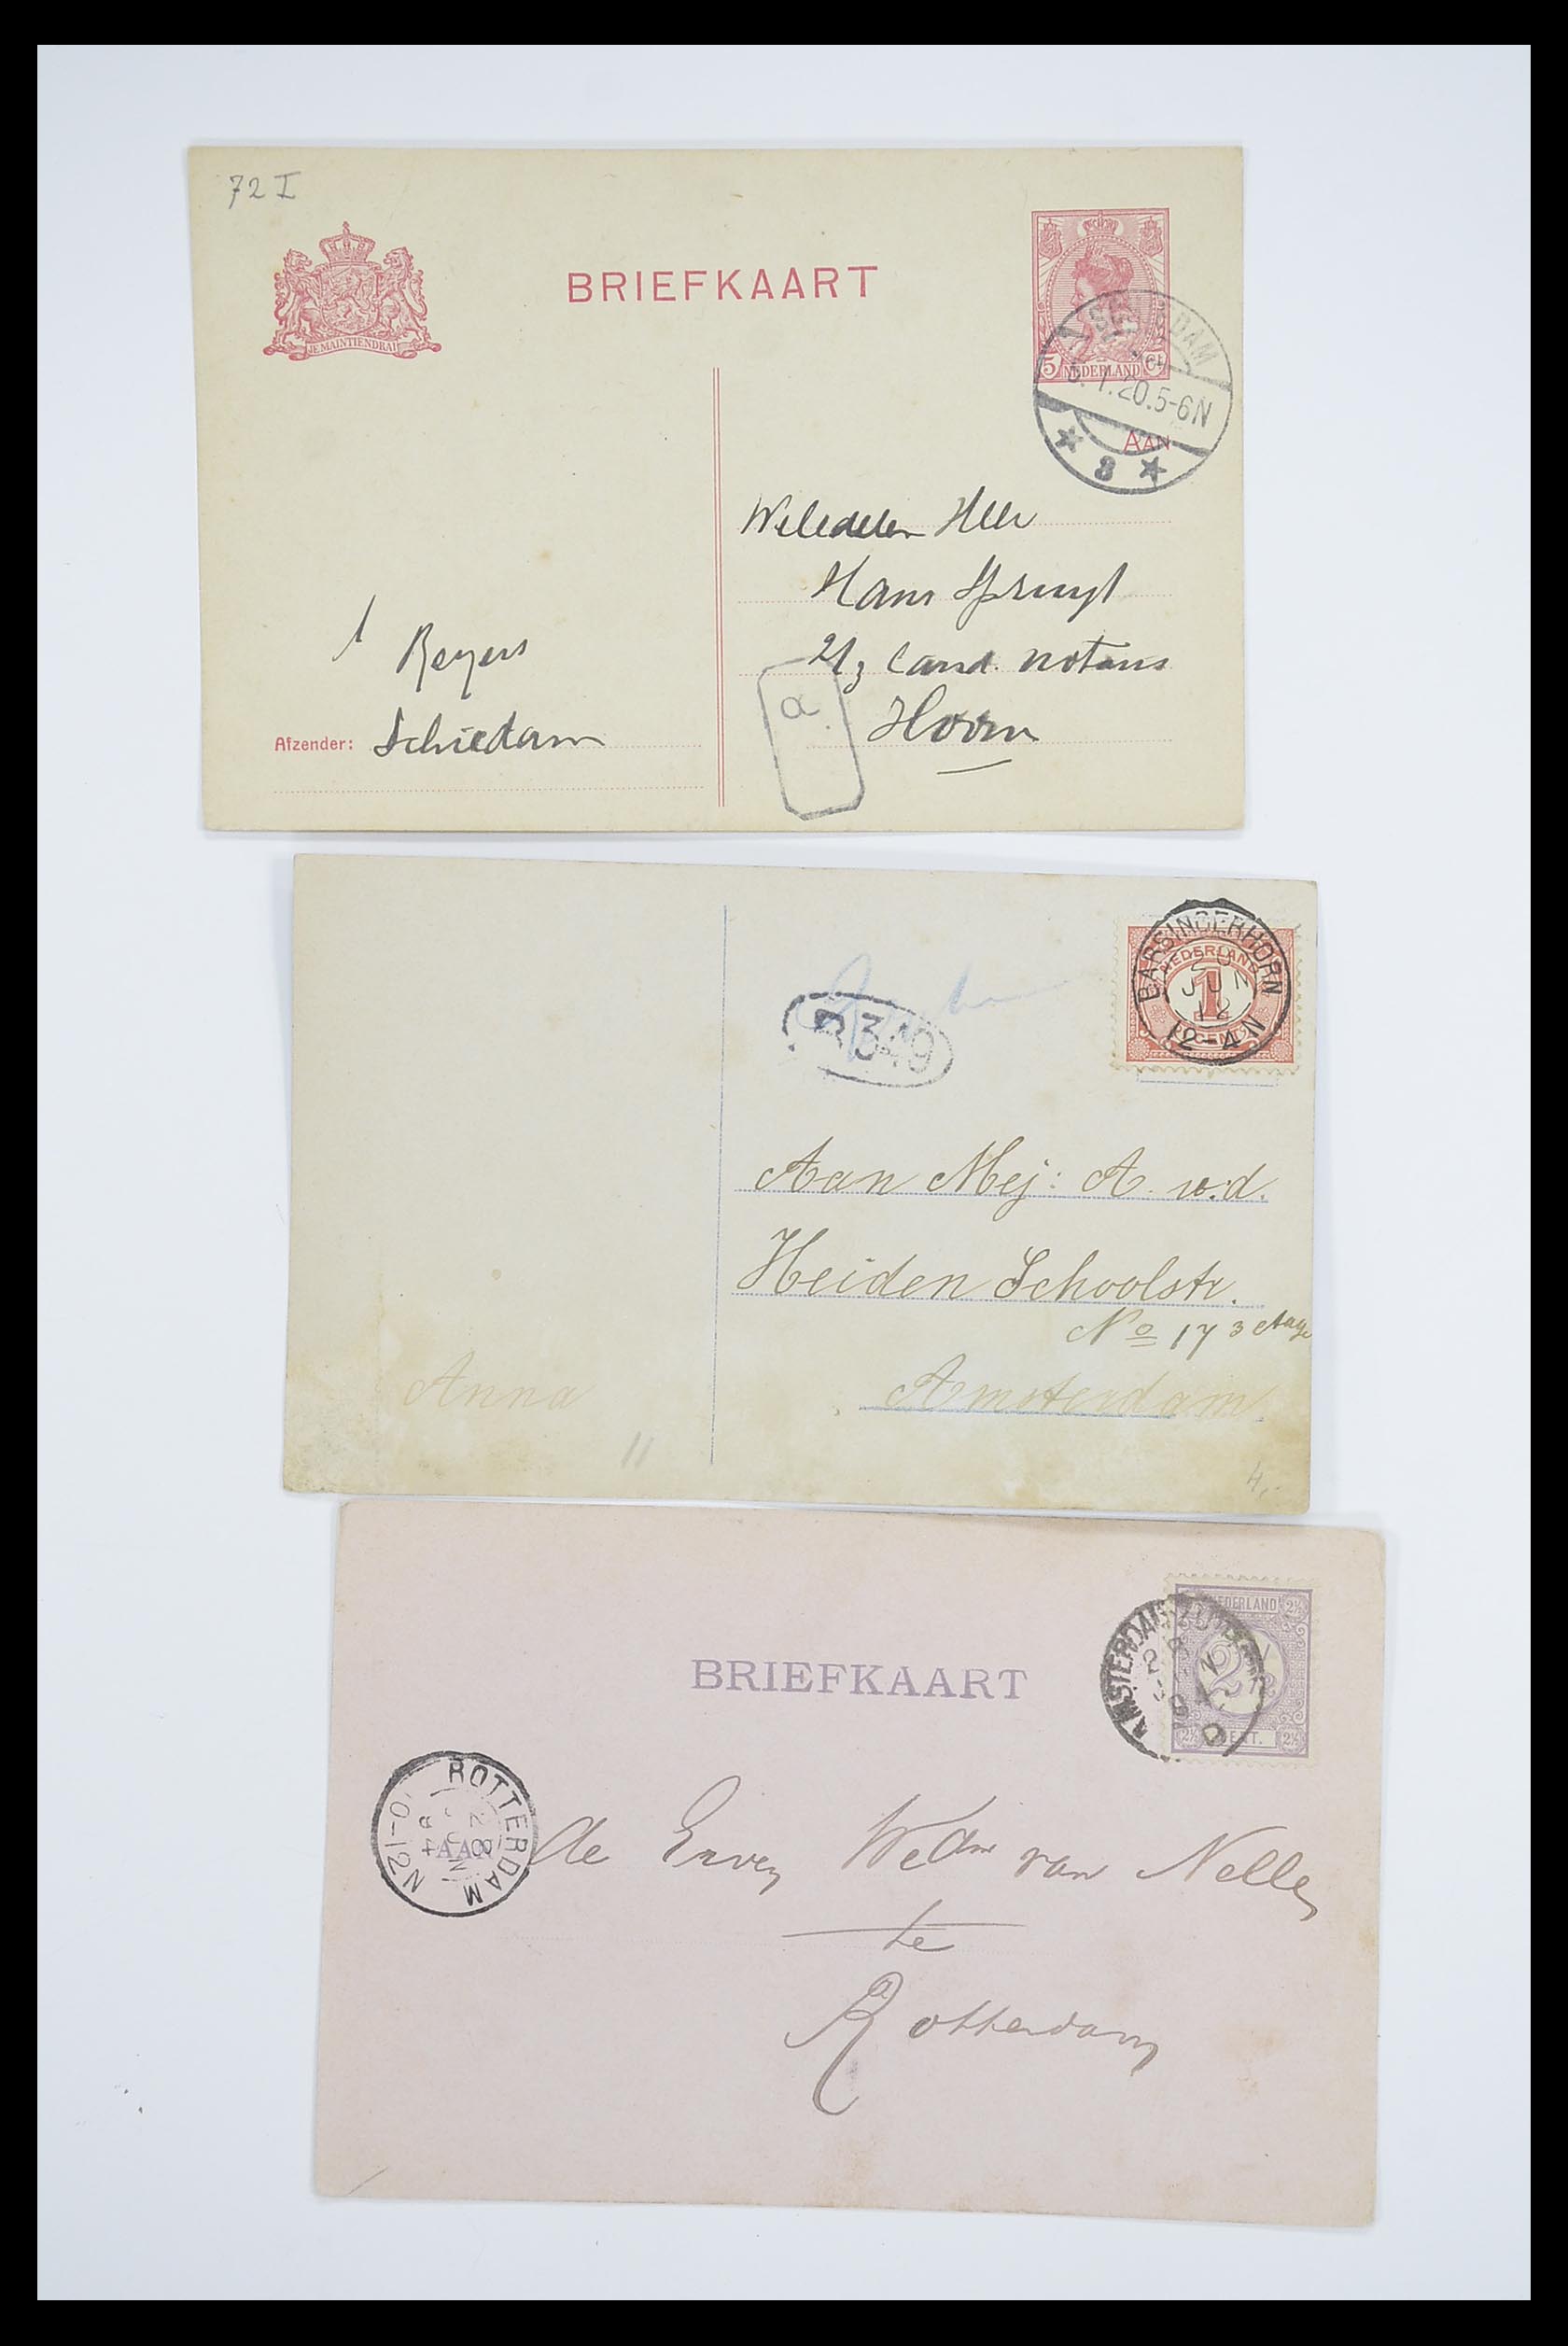 72 I
JE MAINTIENDRAI
BRIEFKAART
5 Ct
NEDERLAND
1.20.5-6N
3
AAN
Weledelen Heer
Hans Spruyt
cand. notaris
Hoorn
a
Reyers
Afzender: Schiedam
BARSINGERHORN
20
JUN
12
12-4N
NEDERLAND
1
CENT
R 349
Aan Mej: A. v.d.
Heiden Schoolstr.
No 17 3 etage
Amsterdam
Anna
11
4,-
BRIEFKAART
NEDERLAND
2½
2½
CENT.
2½
2½
AMSTERDAM
ROTTERDAM
28
JUN
94
10-12N
AAN
de Erven Wed van Nelle
te
Rotterdam